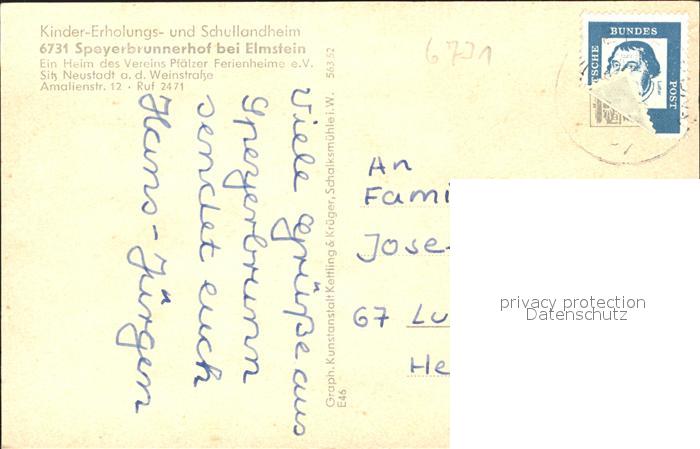 Kinder-Erholungs- und Schullandheim
6731 Speyerbrunnerhof bei Elmstein
Ein Heim des Vereins Pfälzer Ferienheime e.V.
Sitz Neustadt a. d. Weinstraße
Amalienstr. 12 · Ruf 2471
6731
DEUTSCHE
BUNDES
POST
Luther
Viele Grüße aus
Speyerbrunn
sendet euch
Hans-Jürgen
563 52
Graph. Kunstanstalt Kettling & Krüger, Schalksmühle i. W.
E46
An
Fami
Jose
67 Lu
He
privacy protection
Datenschutz